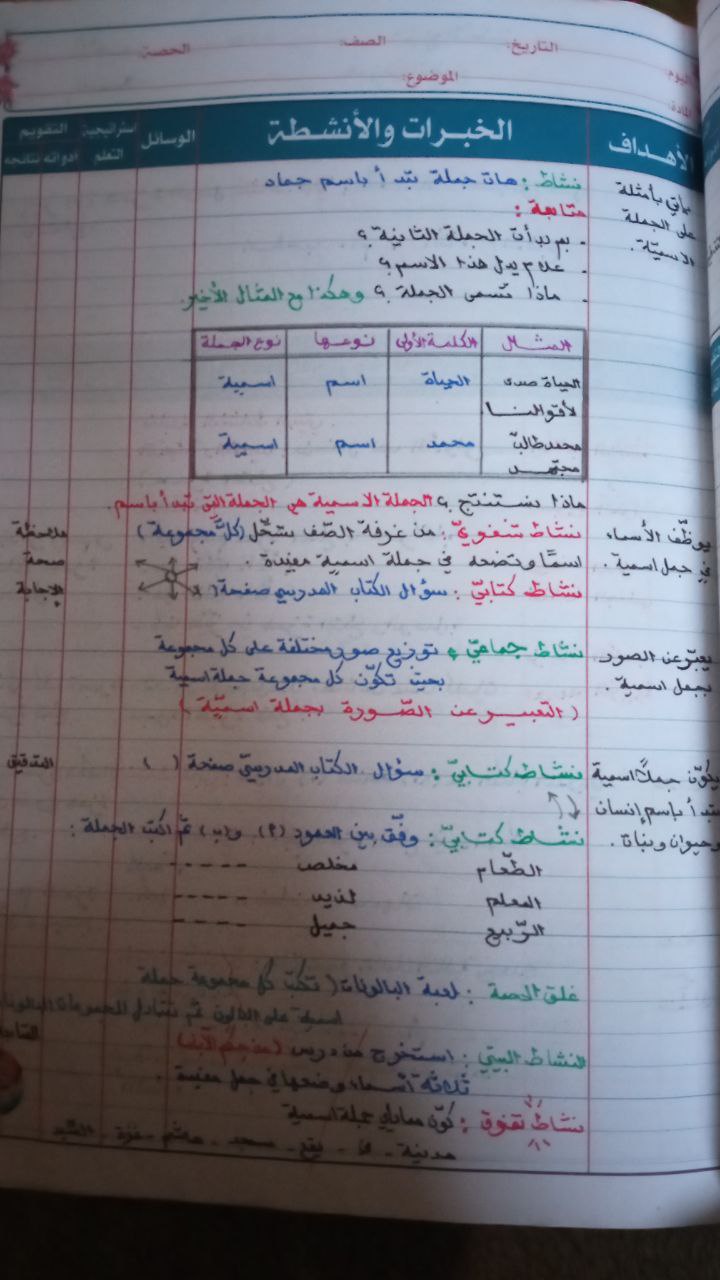 اليوم: التاريخ: الصف: الحصة:
المادة: الموضوع:
الأهداف الخبرات والأنشطة الوسائل استراتيجية التعلم التقويم أدواته نتائجه
يأتي بأمثلة على الجملة الاسمية.
نشاط: هات جملة تبدأ باسم جماد
متابعة:
. بم بدأت الجملة الثانية؟
. علام يدل هذا الاسم؟
. ماذا تسمى الجملة؟ وهكذا مع المثال الأخير.
المثال الكلمة الأولى نوعها نوع الجملة
الحياة صدى لأقوالنا الحياة اسم اسمية
محمد طالبٌ مجتهد محمد اسم اسمية
ماذا نستنتج؟ الجملة الاسمية هي الجملة التي تبدأ باسم.
يوظّف الأسماء في جمل اسمية.
نشاط شفويّ: من غرفة الصّف سجّل (كلّ مجموعة)
اسمًا وتضعه في جملة اسمية مفيدة.
نشاط كتابيّ: سؤال الكتاب المدرسي صفحة (
ملاحظة صحة الإجابة
يعبّر عن الصور بجمل اسمية.
نشاط جماعيّ: توزيع صور مختلفة على كل مجموعة
بحيث تكوّن كل مجموعة جملة اسمية
(التعبير عن الصّورة بجملة اسميّة)
يكوّن جملاً اسمية تبدأ باسم إنسان وحيوان ونبات.
نشاط كتابيّ: سؤال الكتاب المدرسيّ صفحة ( )
التدقيق
نشاط كتابيّ: وفّق بين العمود (أ) و(ب) ثمّ اكتب الجملة:
الطّعام مخلص -----
المعلم لذيذ -----
الرّبيع جميل ----
غلق الحصة: لعبة البالونات (تكتب كل مجموعة جملة
اسمية على البالون ثم تتبادل المجموعات البالونات
النشاط البيتي: استخرج من درس
ثلاثة أسماء وضعها في جمل مفيدة.
نشاط تفوق: كوّن مما يلي جملة اسمية
مدينة - في - يقع - مسجد - هاشم - غزة - السّيد